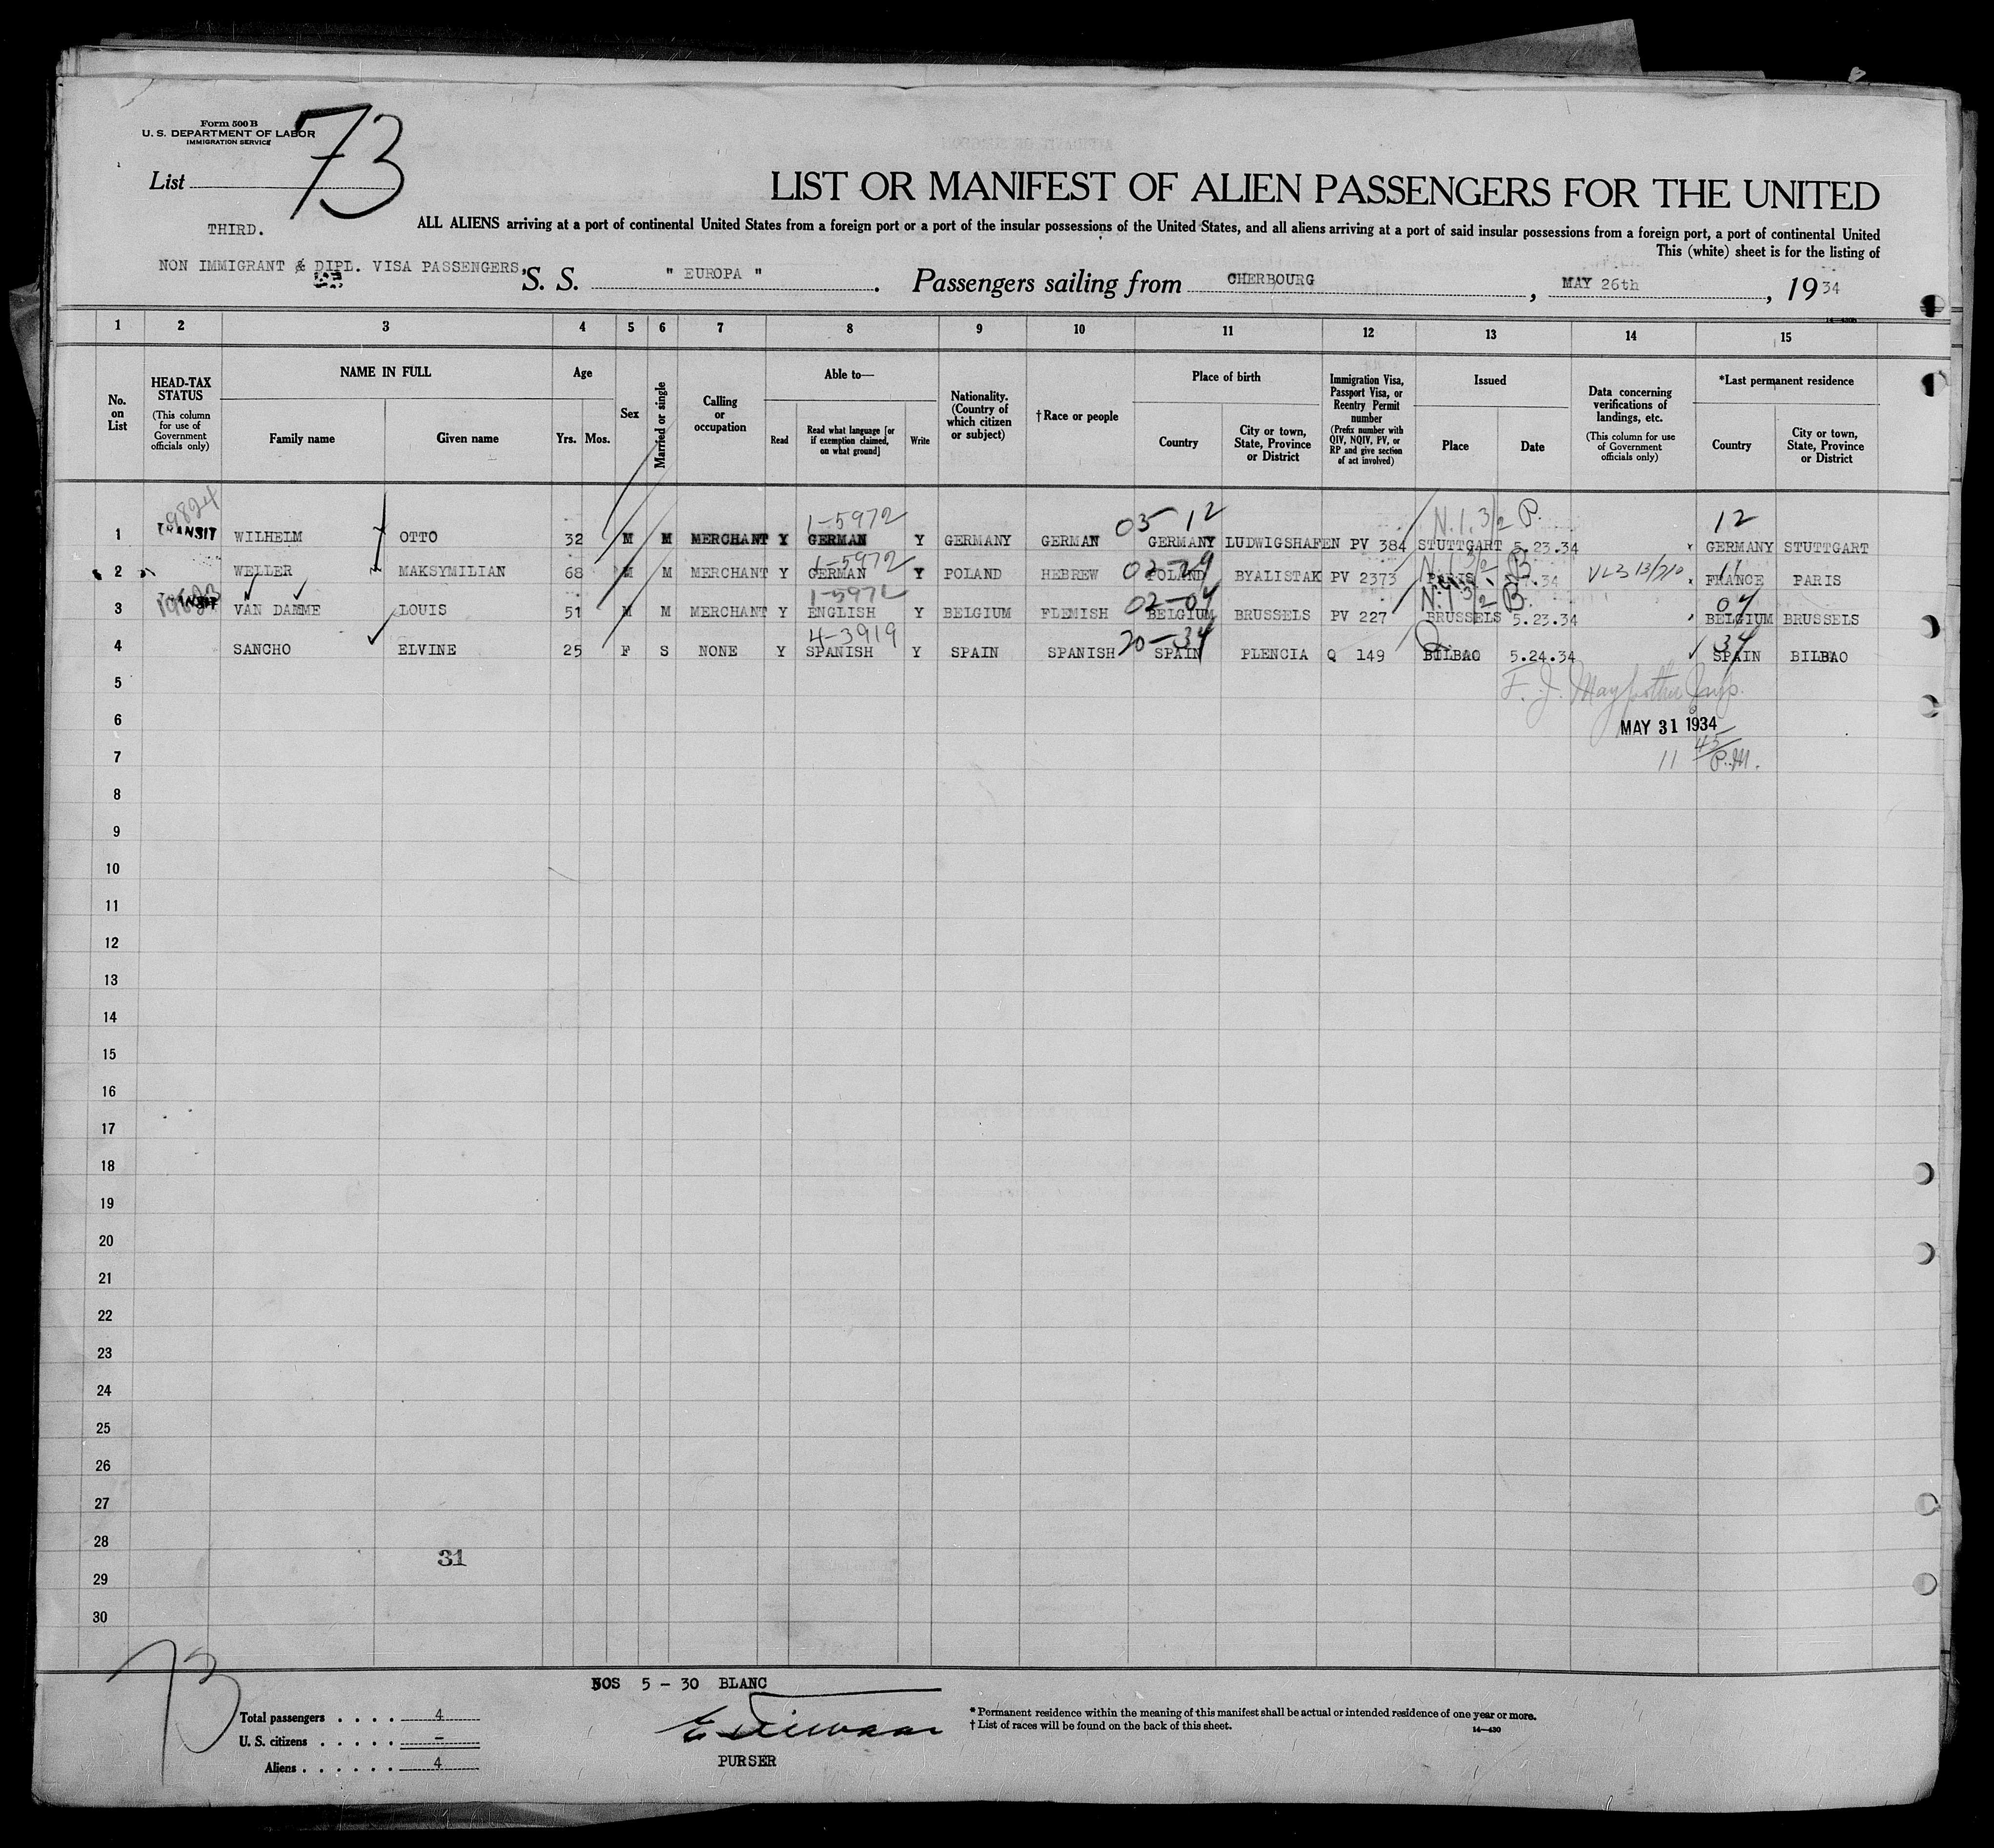 Form 500 B
U. S. DEPARTMENT OF LABOR
IMMIGRATION SERVICE
List 73
LIST OR MANIFEST OF ALIEN PASSENGERS FOR THE UNITED
THIRD.
ALL ALIENS arriving at a port of continental United States from a foreign port or a port of the insular possessions of the United States, and all aliens arriving at a port of said insular possessions from a foreign port, a port of continental United
This (white) sheet is for the listing of
NON IMMIGRANT & DIPL. VISA PASSENGERS, S. S. " EUROPA ". Passengers sailing from CHERBOURG, MAY 26th, 1934
1 2 3 4 5 6 7 8 9 10 11 12 13 14 15
No. on List
HEAD-TAX STATUS (This column for use of Government officials only)
NAME IN FULL
Family name Given name
Age
Yrs. Mos.
Sex
Married or single
Calling or occupation
Able to—
Read
Read what language [or if exemption claimed, on what ground]
Write
Nationality. (Country of which citizen or subject)
†Race or people
Place of birth
Country
City or town, State, Province or District
Immigration Visa, Passport Visa, or Reentry Permit number (Prefix number with QIV, NQIV, PV, or RP and give section of act involved)
Issued
Place Date
Data concerning verifications of landings, etc. (This column for use of Government officials only)
*Last permanent residence
Country
City or town, State, Province or District
19824 1-5972 05-12 N.1.3/2 P. 12
1 TRANSIT WILHELM OTTO 32 M M MERCHANT Y GERMAN Y GERMANY GERMAN GERMANY LUDWIGSHAFEN PV 384 STUTTGART 5.23.34 GERMANY STUTTGART
1-5972 N.1.3/2 B.
2 WELLER MAKSYMILIAN 68 M M MERCHANT Y GERMAN Y POLAND HEBREW POLAND BYALISTAK PV 2373 PARIS FRANCE PARIS
1-5972 02-04 N.1.3/2 B. 04
3 TRANSIT VAN DAMME LOUIS 51 M M MERCHANT Y ENGLISH Y BELGIUM FLEMISH BELGIUM BRUSSELS PV 227 BRUSSELS 5.23.34 BELGIUM BRUSSELS
4-3919 20-34 34
4 SANCHO ELVINE 25 F S NONE Y SPANISH Y SPAIN SPANISH SPAIN PLENCIA Q 149 BILBAO 5.24.34 SPAIN BILBAO
5
6 MAY 31 1934
7 11 45/ P.M.
8
9
10
11
12
13
14
15
16
17
18
19
20
21
22
23
24
25
26
27
28 31
29
30
73
NOS 5 - 30 BLANC
Total passengers . . . . 4
U. S. citizens . . . . . —
Aliens . . . . . . 4
PURSER
* Permanent residence within the meaning of this manifest shall be actual or intended residence of one year or more.
† List of races will be found on the back of this sheet.
14—430